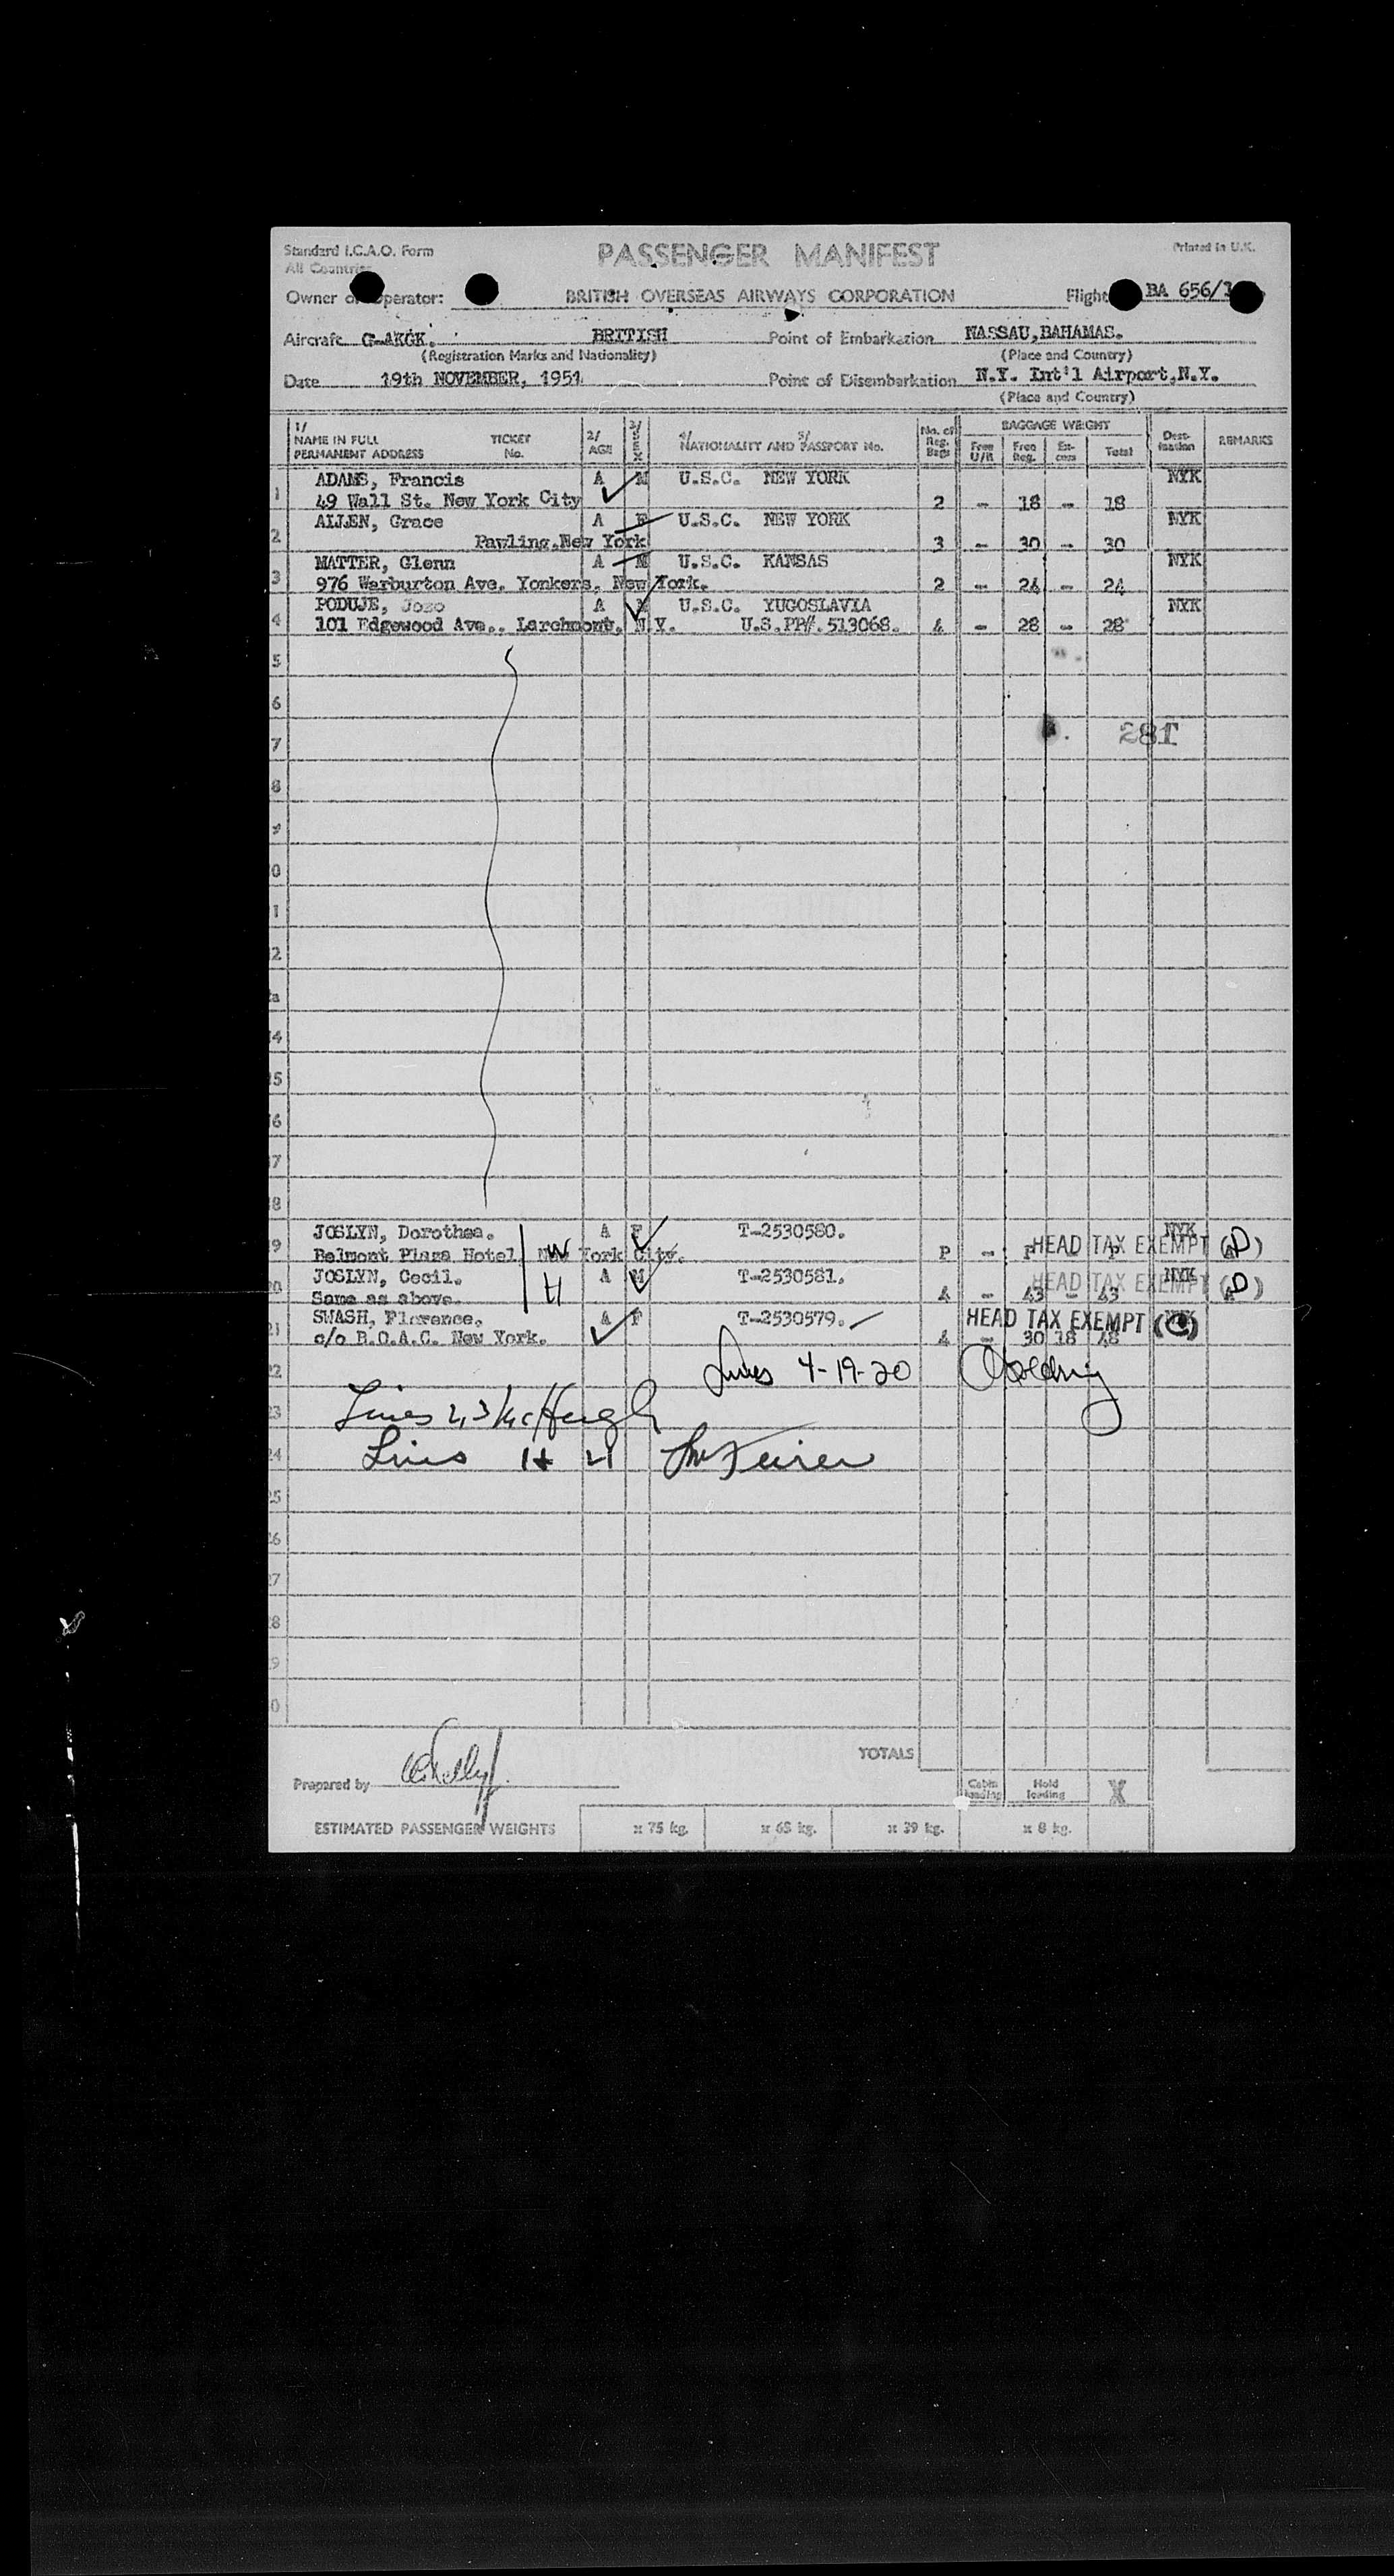 Standard I.C.A.O. Form PASSENGER MANIFEST Printed in U.K.
All Countries
Owner or Operator: BRITISH OVERSEAS AIRWAYS CORPORATION Flight BA 656/
Aircraft G-AKGK. BRITISH Point of Embarkation NASSAU, BAHAMAS.
(Registration Marks and Nationality) (Place and Country)
Date 19th NOVEMBER, 1951 Point of Disembarkation N.Y. Int'l Airport, N.Y.
(Place and Country)
1/ NAME IN FULL PERMANENT ADDRESS TICKET No. 2/ AGE 3/ SEX 4/ NATIONALITY AND 5/ PASSPORT No. No. of Reg. Bags BAGGAGE WEIGHT Free U/R Free Reg. Ex-cess Total Dest-ination REMARKS
1 ADAMS, Francis A M U.S.C. NEW YORK NYK
49 Wall St. New York City 2 - 18 - 18
2 ALLEN, Grace A F U.S.C. NEW YORK NYK
Pawling, New York 3 - 30 - 30
3 MATTER, Glenn A M U.S.C. KANSAS NYK
976 Warburton Ave. Yonkers, New York. 2 - 24 - 24
4 PODUJE, Jozo A M U.S.C. YUGOSLAVIA NYK
101 Edgewood Ave., Larchmont, N.Y. U.S.PP#.513068. 4 - 28 - 28
5
6
7 281
8
9
0
1
2
2a
14
15
16
17
18
19 JOSLYN, Dorothea. A F T-2530580. NYK
Belmont Plaza Hotel, New York City. W P - P - P HEAD TAX EXEMPT (D)
20 JOSLYN, Cecil. A M T-2530581. NYK
Same as above. H 4 - 43 - 43 HEAD TAX EXEMPT (D)
21 SWASH, Florence. A F T-2530579. HEAD TAX EXEMPT
c/o B.O.A.C. New York. 4 - 30 18 48
22 Lines 4-19-20
23 Lines 2,3 McHugh
24 Lines 1 + 21
25
26
27
28
29
0
TOTALS
Prepared by
Cabin loading Hold loading X
ESTIMATED PASSENGER WEIGHTS x 75 kg. x 65 kg. x 39 kg. x 8 kg.